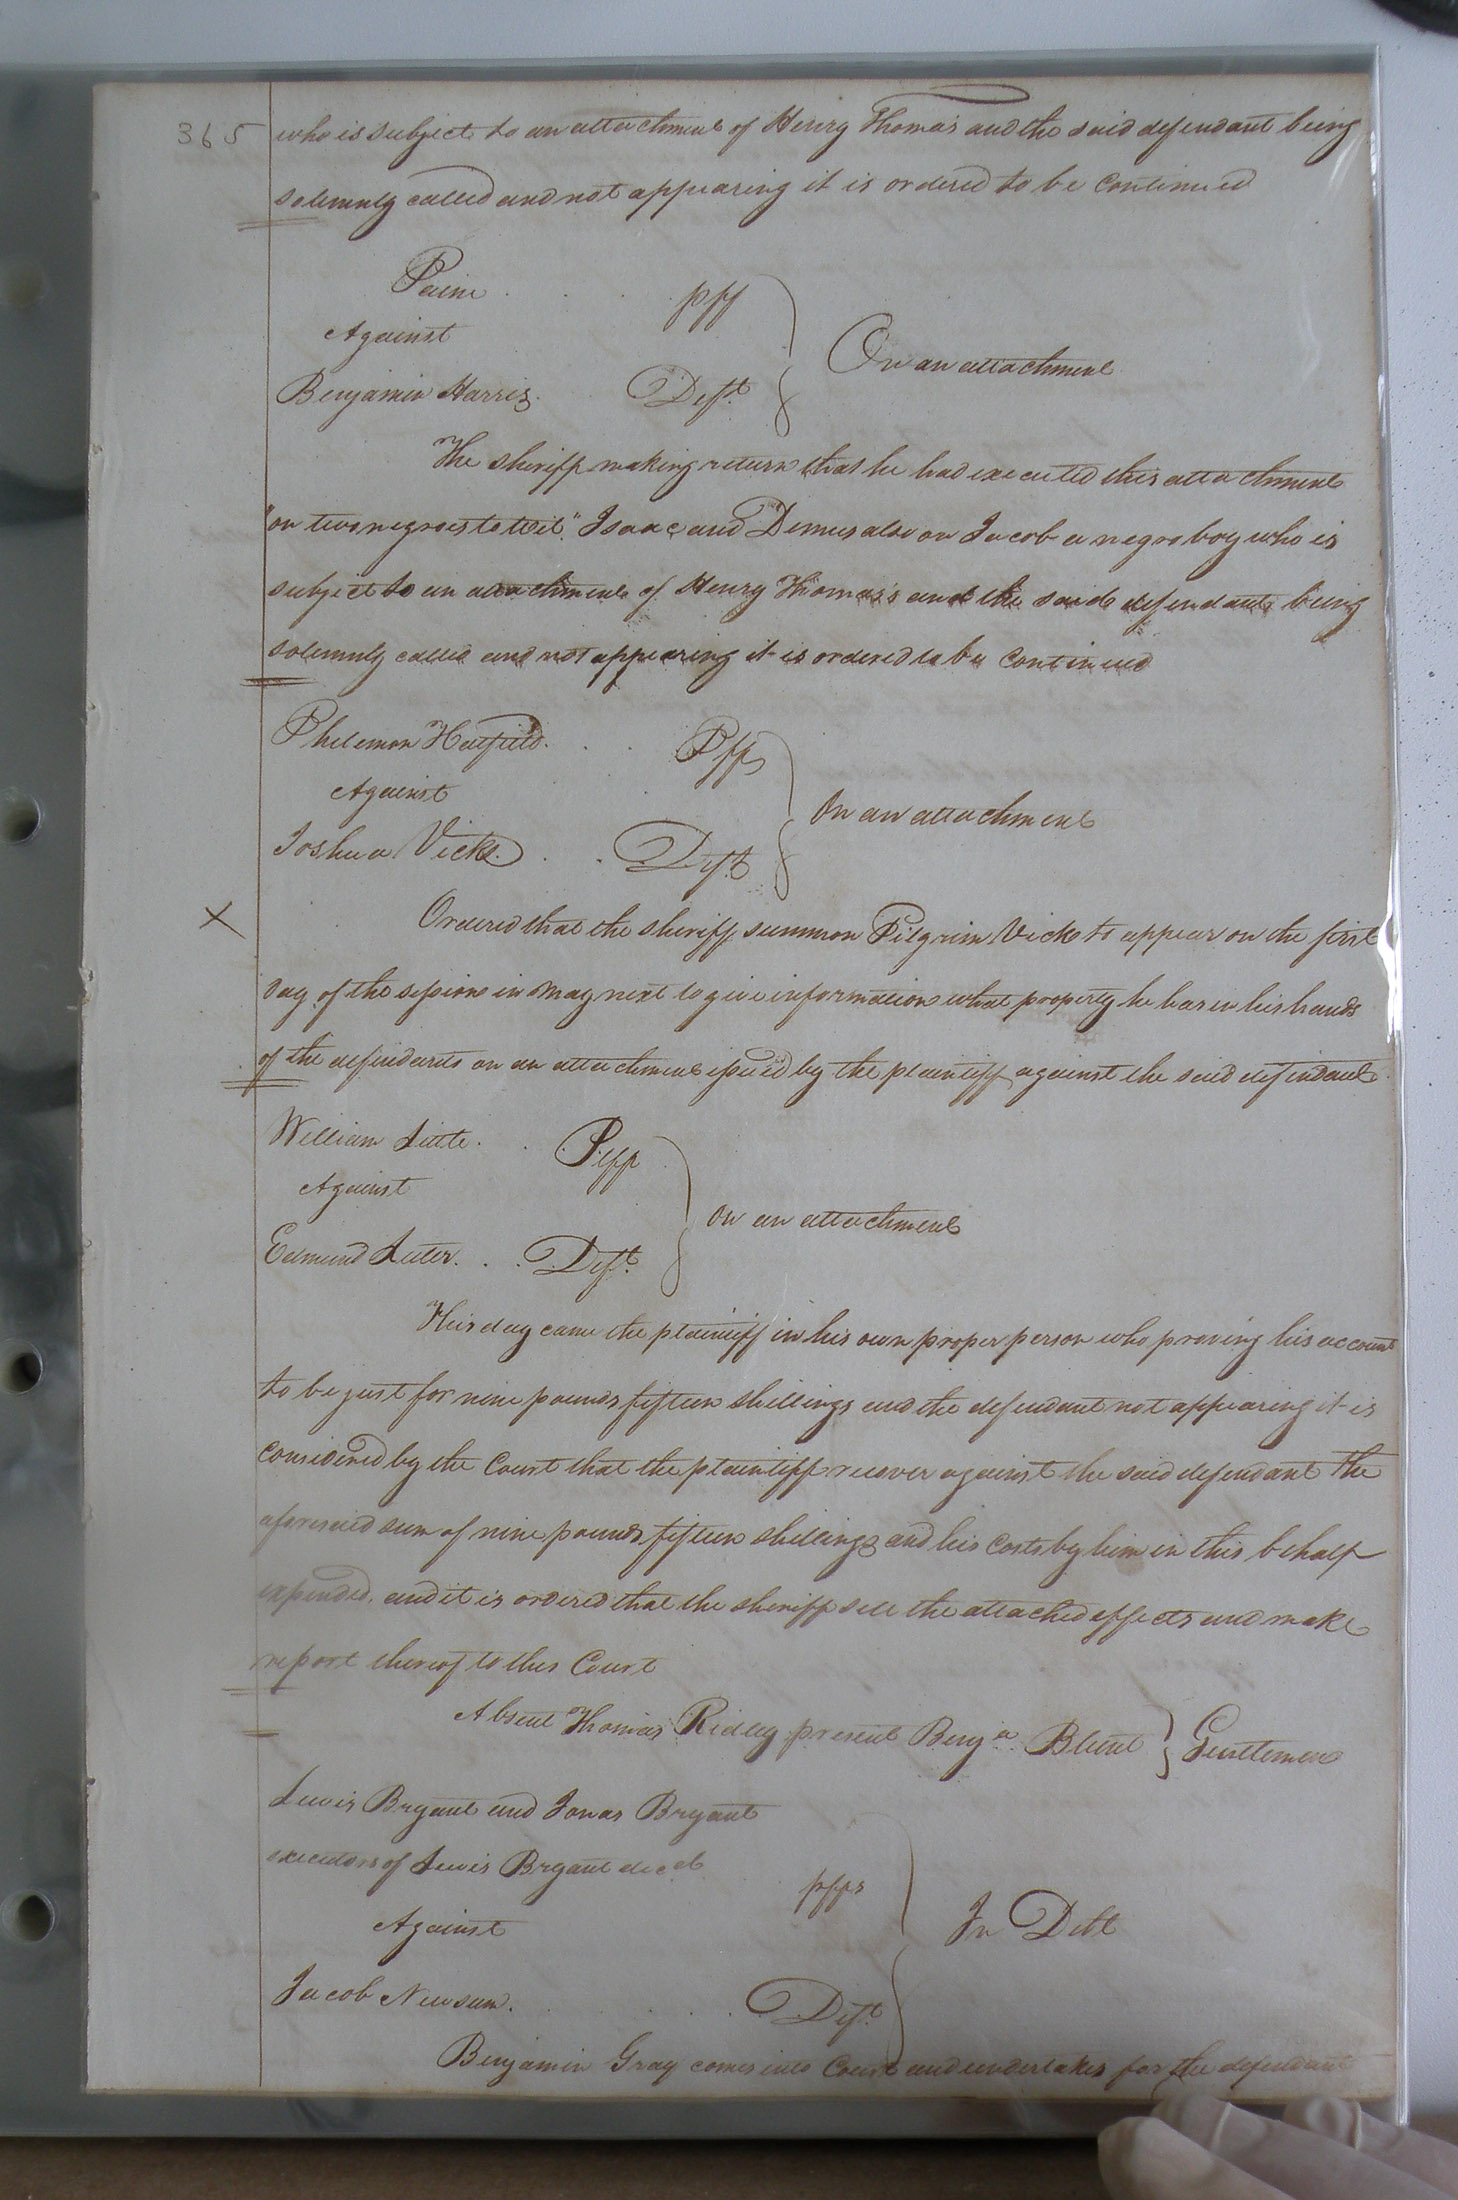 365
who is subject to an attachment of Henry Thomas and the said defendant being
solemnly called and not appearing it is ordered to be Continued
Paine . . . pff
Against
Benjamin Harris. Deft
On an attachment
The sheriff making return that he had executed this attachment
"on two negroes to Wit" Isaac and Demus also on Jacob a negro boy who is
subject to an attachment of Henry Thomas's and the said defendant being
solemnly called and not appearing it is ordered to be Continued
Philemon Hatfield. . . Pff
Against
Joshua Vicks. . . Deft
On an attachment
X
Ordered that the sheriff summon Pilgrim Vick to appear on the first
day of the session in May next to give information what property he has in his hands
of the defendants on an attachment issued by the plaintiff against the said defendant
William Little. . Plff
Against
Edmund Luter. . . Deft
On an attachment
This day came the plaintiff in his own proper person who proving his account
to be just for nine pounds fifteen shillings and the defendant not appearing it is
Considered by the Court that the plaintiff recover against the said defendant the
aforesaid sum of nine pounds fifteen shillings and his Costs by him in this behalf
expended. and it is ordered that the sheriff sell the attached effects and make
report thereof to this Court
Absent Thomas Ridley present Benja. Blunt } Gentlemen
Lewis Bryant and Jonas Bryant
executors of Lewis Bryant decd
pffs
Against
Jacob Newsum. . . . Deft
In Debt
Benjamin Gray comes into Court and undertakes for the defendant